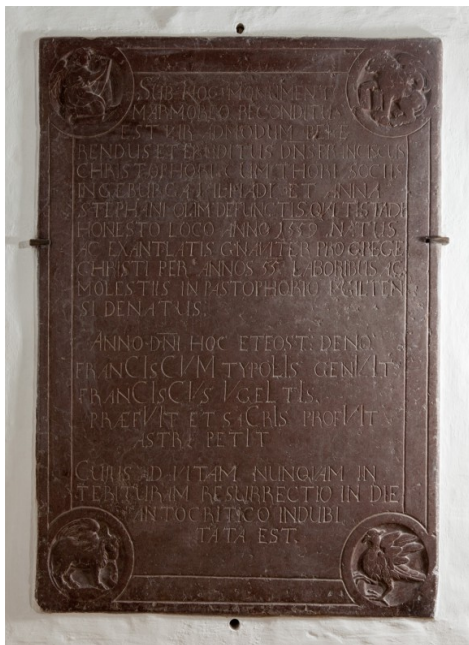 SUB HOC MONUMENT
MARMOREO RECONDITUS
EST VIR ADMODUM REVE
RENDUS ET ERUDITUS DNS FRANCISCUS
CHRISTOPHORI
ET ANNA
STEPHANI OLIM DEFUNCTIS
HONESTO LOCO ANNO 1559 NATUS
AC EXANTLATIS GNAVITER PRO GREGE
CHRISTI PER ANNOS 55 LABORIBUS AC
MOLESTIIS IN PASTOPHORIO
SI DENATUS:
ANNO DNI HOC ET EOST: DENO
FRANCISCVM TYPOLIS GENVIT
FRANCISCVS VGELTIS,
PRÆFVIT ET SACRIS PROFVIT
ASTRA PETIT
CUIUS AD VITAM NUNQUAM IN
TERITURAM RESURRECTIO IN DIE
AUTOCRITICO INDUBI
TATA EST.